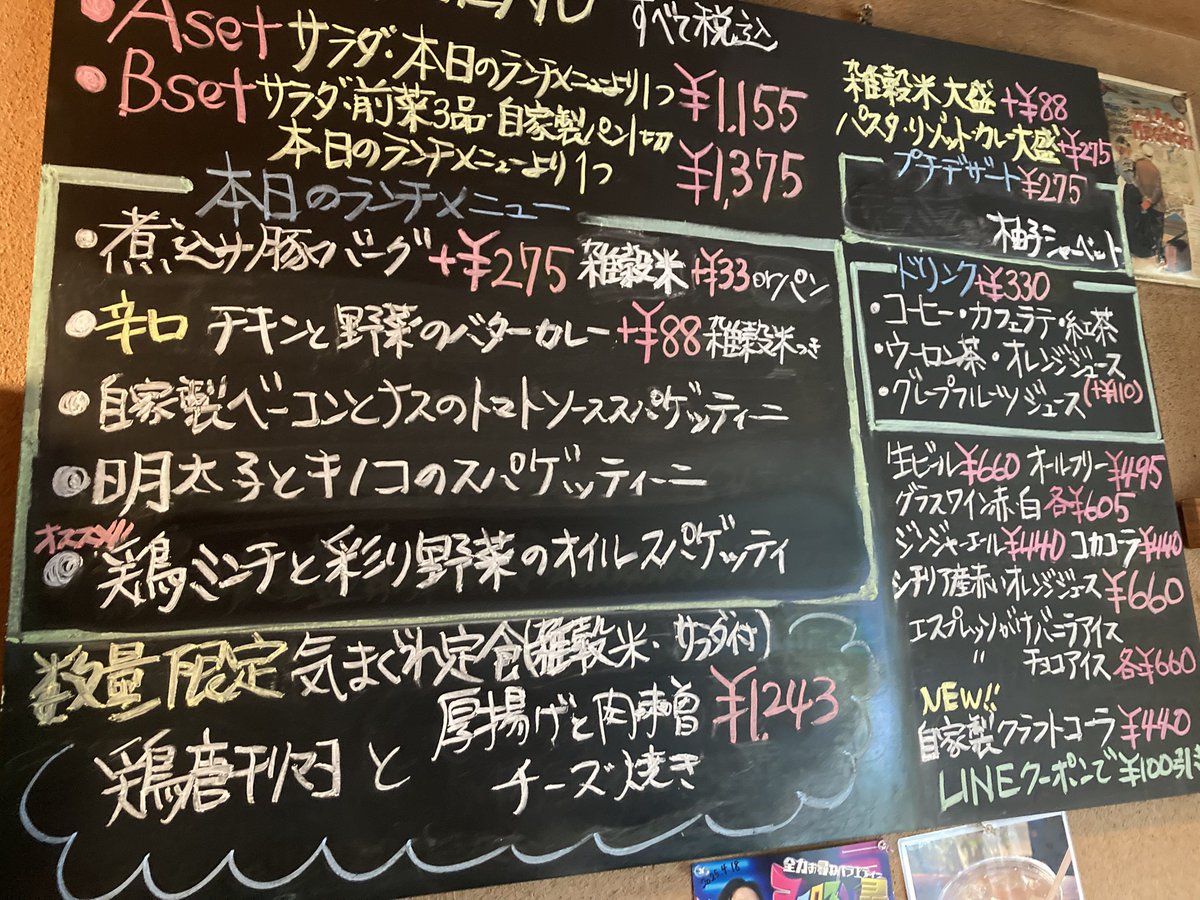 すべて税込
Aset サラダ・本日のランチメニューより1つ ¥1,155
Bset サラダ・前菜3品・自家製パン1切
本日のランチメニューより1つ ¥1,375
本日のランチメニュー
煮込サ豚バーグ+¥275 雑穀米+¥33orパン
辛口 チキンと野菜のバターカレー+¥88雑穀米つき
自家製ベーコンとナスのトマトソーススパゲッティーニ
明太子とキノコのスパゲッティーニ
オススメ!!!
鶏ミンチと彩り野菜のオイルスパゲッティ
数量限定 気まぐれ定食(雑穀米・サラダ付)
鶏唐チリマヨ と 厚揚げと肉味噌 ¥1,243
チーズ焼き
雑穀米大盛+¥88
パスタ・リゾット・カレー大盛+¥275
プチデザート¥275
柚子シャーベット
ドリンク+¥330
・コーヒー・カフェラテ・紅茶
・ウーロン茶・オレンジジュース
・グレープフルーツジュース(+¥110)
生ビール¥660 オールフリー¥495
グラスワイン赤・白 各¥605
ジンジャーエール¥440 コカコーラ¥440
シチリア産赤いオレンジジュース¥660
エスプレッソがけバニラアイス
〃 チョコアイス 各¥660
NEW!!
自家製クラフトコーラ¥440
LINEクーポンで¥100引き
2025.9.18